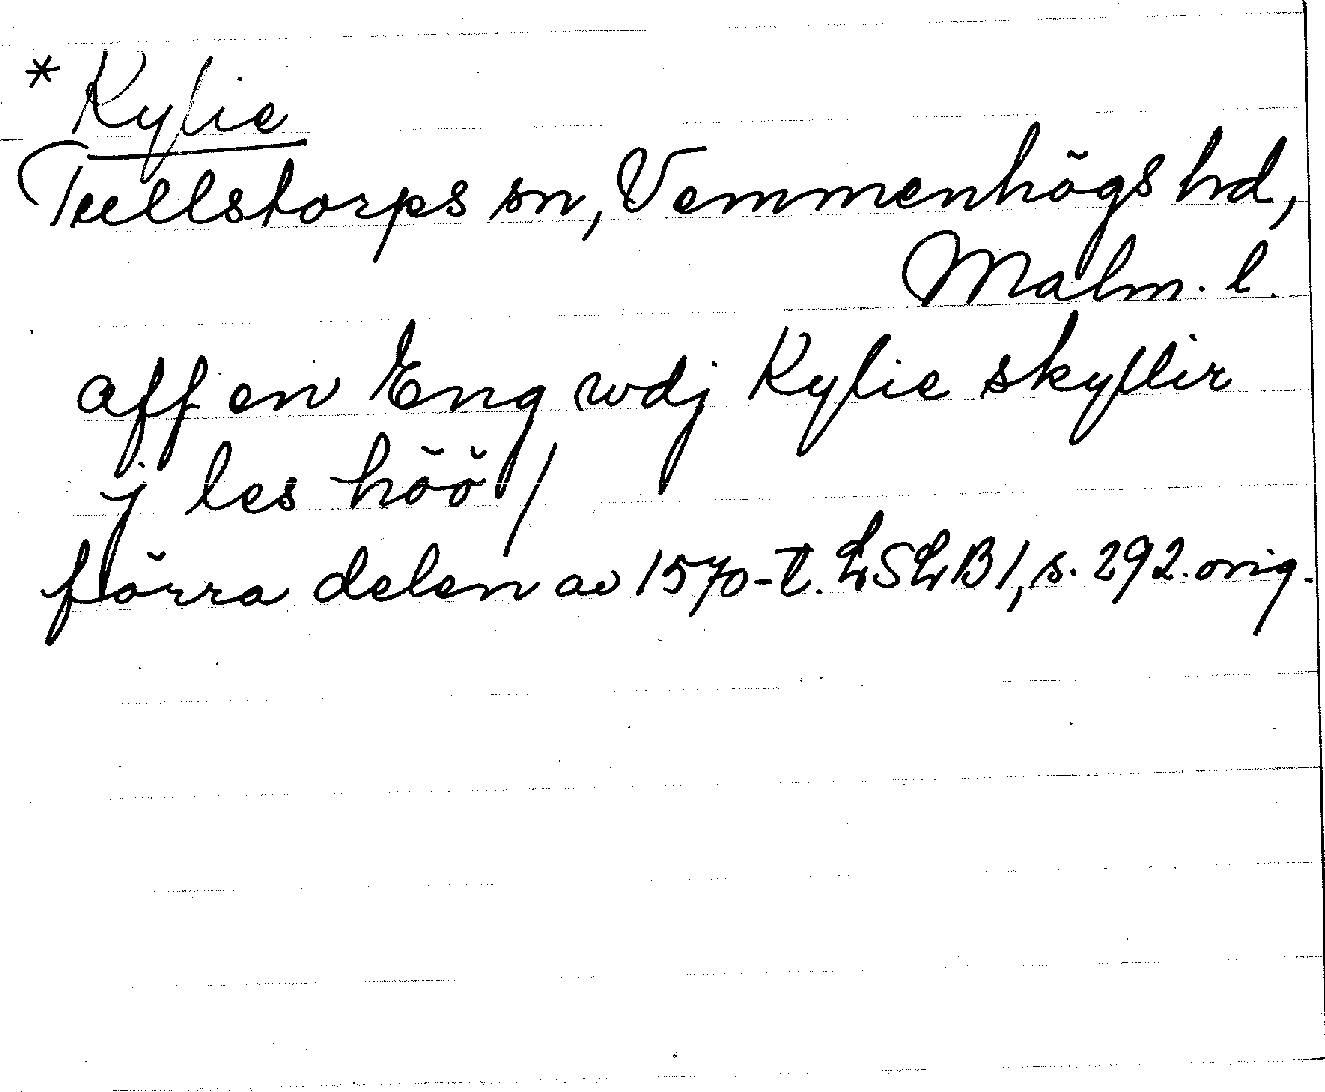 * Kylie
Tullstorps sn, Vemmenhögs hd,
Malm. l.
aff en Eng wdj Kylie skyllir
j les höö /
förra delen av 1570-t. LSLB 1, s. 292. orig.